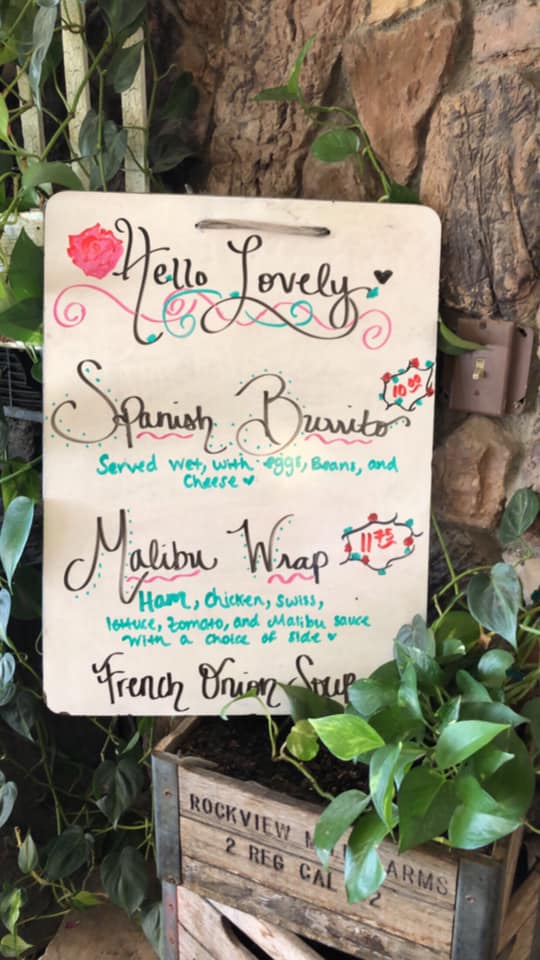 Hello Lovely
10.00
Spanish Burrito
Served wet, with eggs, Beans, and
Cheese
Malibu Wrap
11.75
Ham, Chicken, Swiss,
lettuce, tomato, and Malibu sauce
with a choice of side
French Onion Soup
ROCKVIEW
ARMS
2 REG CAL 2